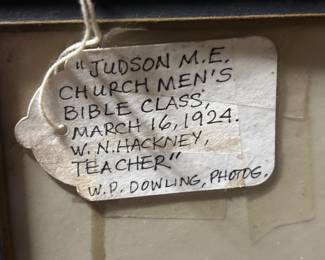 "JUDSON M.E.
CHURCH MEN'S
BIBLE CLASS,
MARCH 16, 1924.
W. N. HACKNEY,
TEACHER"
W. P. DOWLING, PHOTOG.